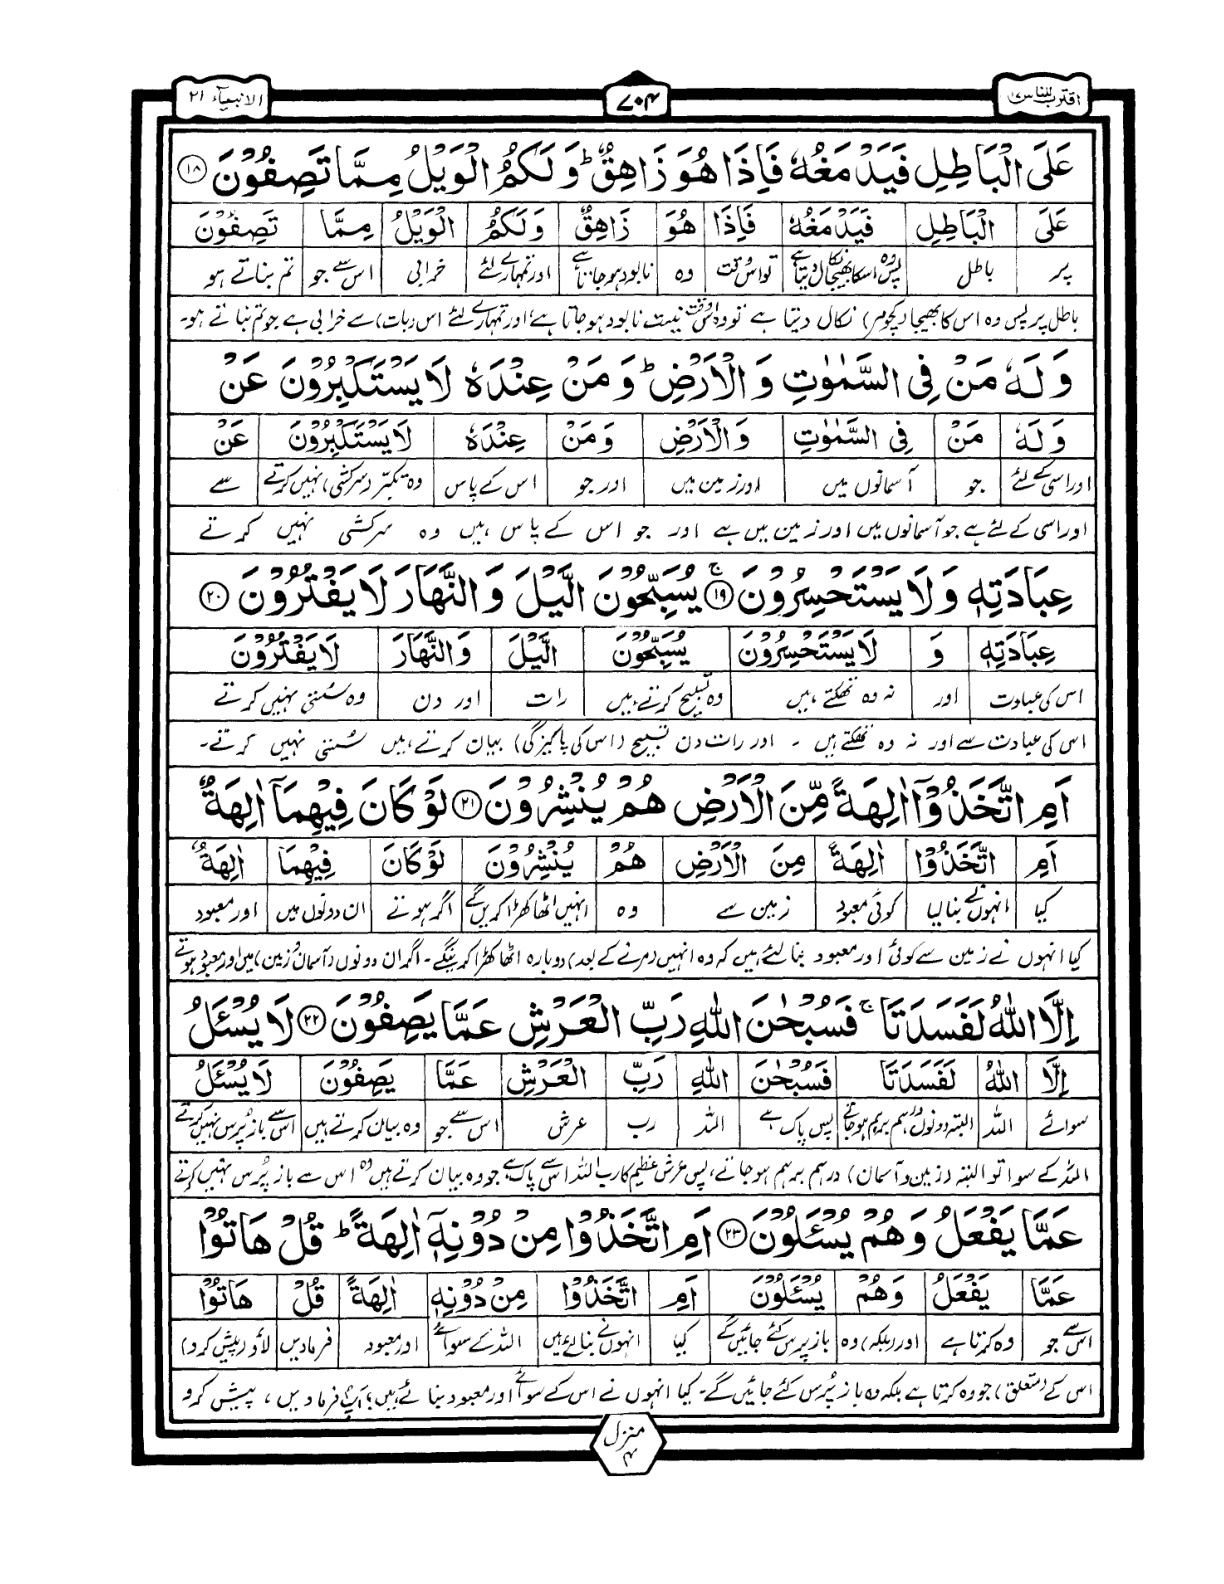 اقترب للناس ۱۷
۷۰۴
الانبیآء ۲۱
عَلَى الْبَاطِلِ فَيَدْمَغُهٗ فَاِذَا هُوَ زَاهِقٌ ؕ وَلَكُمُ الْوَيْلُ مِمَّا تَصِفُوْنَ ۝۱۸
عَلَى الْبَاطِلِ فَيَدْمَغُهٗ فَاِذَا هُوَ زَاهِقٌ وَلَكُمُ الْوَيْلُ مِمَّا تَصِفُوْنَ
پر باطل پس وہ اسکا بھیجا نکال دیتا ہے تو اس وقت وہ نابود ہو جاتا ہے اور تمہارے لئے خرابی اس سے جو تم بناتے ہو
باطل پر پس وہ اس کا بھیجا (کچومر) نکال دیتا ہے تو وہ اس وقت نیست نابود ہو جاتا ہے اور تمہارے لئے اس (بات) سے خرابی ہے جو تم بناتے ہو۔
وَلَهٗ مَنْ فِى السَّمٰوٰتِ وَالْاَرْضِ ؕ وَمَنْ عِنْدَهٗ لَا يَسْتَكْبِرُوْنَ عَنْ
وَلَهٗ مَنْ فِى السَّمٰوٰتِ وَالْاَرْضِ وَمَنْ عِنْدَهٗ لَا يَسْتَكْبِرُوْنَ عَنْ
اور اسی کے لئے جو آسمانوں میں اور زمین میں اور جو اس کے پاس وہ تکبر (سرکشی) نہیں کرتے سے
اور اسی کے لئے ہے جو آسمانوں میں اور زمین میں ہے اور جو اس کے پاس ہیں وہ سرکشی نہیں کرتے
عِبَادَتِهٖ وَلَا يَسْتَحْسِرُوْنَ ۝۱۹ ۚ يُسَبِّحُوْنَ الَّيْلَ وَالنَّهَارَ لَا يَفْتُرُوْنَ ۝۲۰
عِبَادَتِهٖ وَ لَا يَسْتَحْسِرُوْنَ يُسَبِّحُوْنَ الَّيْلَ وَالنَّهَارَ لَا يَفْتُرُوْنَ
اس کی عبادت اور نہ وہ تھکتے ہیں وہ تسبیح کرتے ہیں رات اور دن وہ سستی نہیں کرتے
اس کی عبادت سے اور نہ وہ تھکتے ہیں ۔ اور رات دن تسبیح (اس کی پاکیزگی) بیان کرتے ہیں سستی نہیں کرتے۔
اَمِ اتَّخَذُوْۤا اٰلِهَةً مِّنَ الْاَرْضِ هُمْ يُنْشِرُوْنَ ۝۲۱ لَوْ كَانَ فِيْهِمَاۤ اٰلِهَةٌ
اَمِ اتَّخَذُوْا اٰلِهَةً مِنَ الْاَرْضِ هُمْ يُنْشِرُوْنَ لَوْ كَانَ فِيْهِمَا اٰلِهَةٌ
کیا انہوں نے بنالیا کوئی معبود زمین سے وہ انہیں اٹھا کھڑا کریں گے اگر ہوتے ان دونوں میں اور معبود
کیا انہوں نے زمین سے کوئی اور معبود بنا لئے ہیں کہ وہ انہیں (مرنے کے بعد) دوبارہ اٹھا کھڑا کرینگے۔ اگر ان دونوں (آسمان و زمین) میں اور معبود ہوتے
اِلَّا اللّٰهُ لَفَسَدَتَا ۚ فَسُبْحٰنَ اللّٰهِ رَبِّ الْعَرْشِ عَمَّا يَصِفُوْنَ ۝۲۲ لَا يُسْـَٔلُ
اِلَّا اللّٰهُ لَفَسَدَتَا فَسُبْحٰنَ اللّٰهِ رَبِّ الْعَرْشِ عَمَّا يَصِفُوْنَ لَا يُسْـَٔلُ
سوائے اللہ البتہ دونوں درہم برہم ہوجاتے پس پاک ہے اللہ رب عرش اس سے جو وہ بیان کرتے ہیں اس سے باز پرس نہیں کرتے
اللہ کے سوا تو البتہ (زمین و آسمان) درہم برہم ہو جاتے، پس عرش عظیم کا رب اللہ اس سے پاک ہے جو وہ بیان کرتے ہیں وہ اس سے باز پرس نہیں کرتے
عَمَّا يَفْعَلُ وَهُمْ يُسْـَٔلُوْنَ ۝۲۳ اَمِ اتَّخَذُوْا مِنْ دُوْنِهٖۤ اٰلِهَةً ؕ قُلْ هَاتُوْا
عَمَّا يَفْعَلُ وَهُمْ يُسْـَٔلُوْنَ اَمِ اتَّخَذُوْا مِنْ دُوْنِهٖ اٰلِهَةً قُلْ هَاتُوْا
اس سے جو وہ کرتا ہے اور (بلکہ) وہ باز پرس کئے جائیں گے کیا انہوں نے بنالئے ہیں اللہ کے سوائے اور معبود فرمادیں لاؤ (پیش کرو)
اس کے (متعلق) جو وہ کرتا ہے بلکہ وہ باز پرس کئے جائیں گے۔ کیا انہوں نے اس کے سوائے اور معبود بنائے ہیں؟ آپ فرمادیں، پیش کرو
منزل ۴